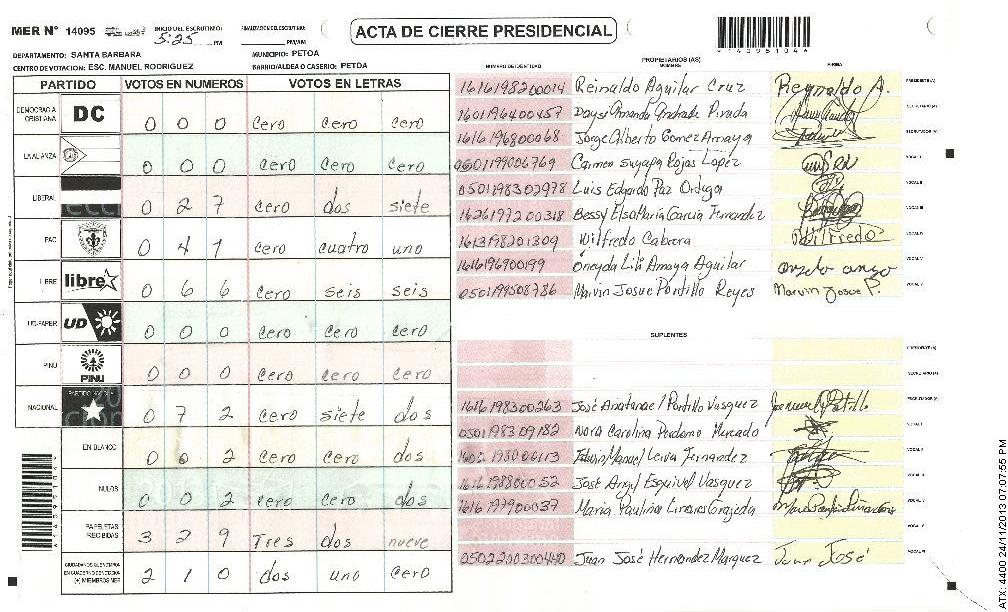 MER Nº 14095
INICIO DEL ESCRUTINIO:
5:25 PM
FINALIZACION DEL ESCRUTINIO:
PM/AM
ACTA DE CIERRE PRESIDENCIAL
DEPARTAMENTO: SANTA BARBARA
MUNICIPIO: PETOA
CENTRO DE VOTACION: ESC. MANUEL RODRIGUEZ
BARRIO/ALDEA O CASERIO: PETOA
PARTIDO VOTOS EN NUMEROS VOTOS EN LETRAS
DEMOCRACIA CRISTIANA DC 0 0 0 cero cero cero
LA ALIANZA 0 0 0 cero cero cero
LIBERAL 0 2 7 cero dos siete
PAC 0 4 1 cero cuatro uno
LIBRE libre 0 6 6 cero seis seis
UD-FAPER UD 0 0 0 cero cero cero
PINU PINU 0 0 0 cero cero cero
NACIONAL 0 7 2 cero siete dos
EN BLANCO 0 0 2 cero cero dos
NULOS 0 0 2 cero cero dos
PAPELETAS RECIBIDAS 3 2 9 Tres dos nueve
2 1 0 dos uno cero
NUMERO DE IDENTIDAD
PROPIETARIOS (AS)
NOMBRE
FIRMA
1616198200014 Reinaldo Aguilar Cruz Reynaldo A. PRESIDENTE (A)
1601196400457 Daysi Amanda Andrade Pineda SECRETARIO (A)
1616196800068 Jorge Alberto Gomez Amaya ESCRUTADOR (A)
0501199006769 Carmen Suyapa Rojas Lopez VOCAL I
0501198302978 Luis Edgardo Paz Ortega VOCAL II
1626197200318 Bessy Elsa Maria Garcia Fernandez VOCAL III
1613198201309 Wilfredo Cabrera Wilfredo
1616196900199 Oneyda Lili Amaya Aguilar VOCAL V
0501199508786 Marvin Josue Portillo Reyes Marvin Josue P.
SUPLENTES
PRESIDENTE (A)
SECRETARIO (A)
1616198300263 Portillo Vasquez ESCRUTADOR (A)
0501198309182 Nora Carolina Perdomo Mercado VOCAL I
Edwin Manuel Leiva Fernandez
1616198800052 José Angel Esquivel Vasquez
1616197900037 Maria Paulina Linares Grajeda
0502200300440 Juan José Hernandez Marquez Juan José
ATX: 4400 24/11/2013 07:07:55 PM